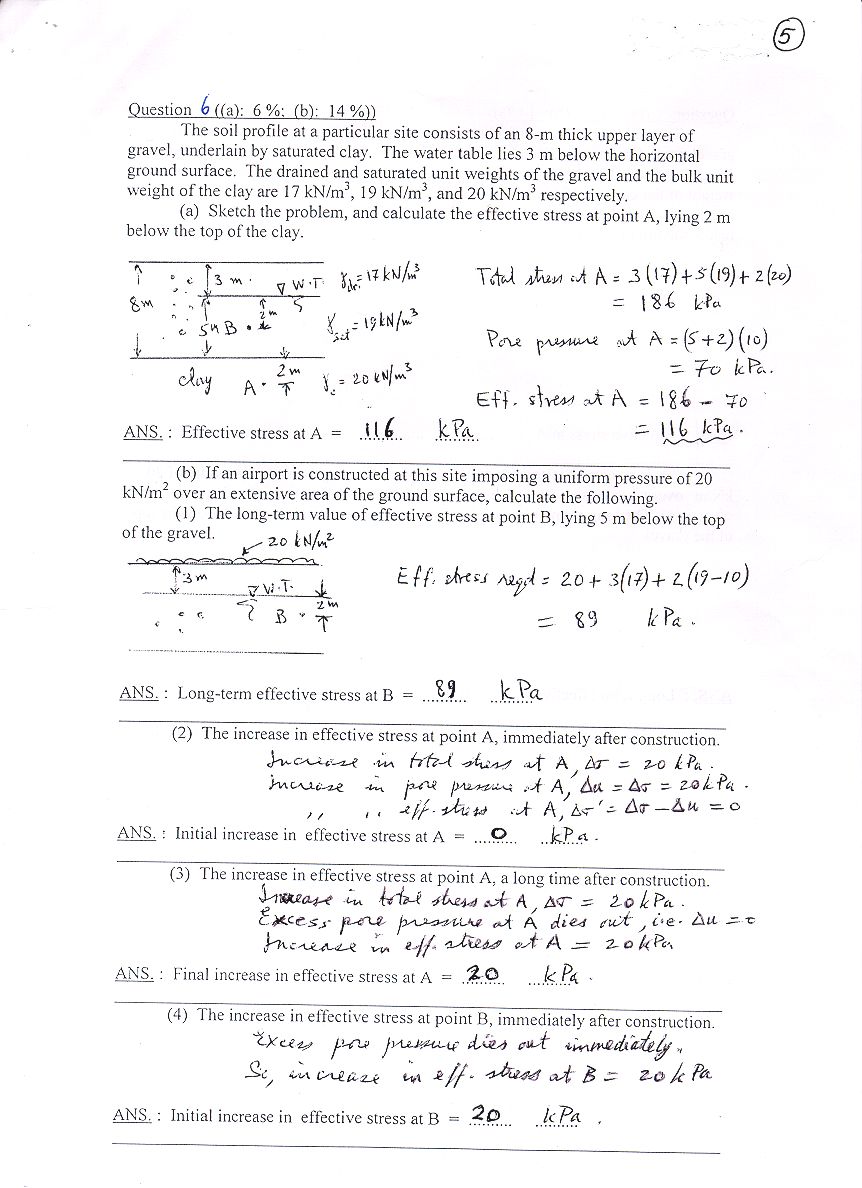 5
Question 6 ((a): 6 %; (b): 14 %))
The soil profile at a particular site consists of an 8-m thick upper layer of
gravel, underlain by saturated clay. The water table lies 3 m below the horizontal
ground surface. The drained and saturated unit weights of the gravel and the bulk unit
weight of the clay are 17 kN/m³, 19 kN/m³, and 20 kN/m³ respectively.
(a) Sketch the problem, and calculate the effective stress at point A, lying 2 m
below the top of the clay.
3 m. ∇ W.T. γdr. = 17 kN/m³
8m
5m B • 2m γsat = 19 kN/m³
clay A • 2m γc = 20 kN/m³
Total stress at A = 3(17)+5(19)+2(20)
= 186 kPa
Pore pressure at A = (5+2)(10)
= 70 kPa.
Eff. stress at A = 186 – 70
= 116 kPa.
ANS. : Effective stress at A = 116 kPa
(b) If an airport is constructed at this site imposing a uniform pressure of 20
kN/m² over an extensive area of the ground surface, calculate the following.
(1) The long-term value of effective stress at point B, lying 5 m below the top
of the gravel.
20 kN/m²
3m
∇ W.T.
B • 2m
Eff. stress reqd = 20 + 3(17) + 2(19-10)
= 89 kPa.
ANS. : Long-term effective stress at B = 89 kPa
(2) The increase in effective stress at point A, immediately after construction.
Increase in total stress at A, Δσ = 20 kPa.
increase in pore pressure at A, Δu = Δσ = 20kPa.
,, ,, eff. stress at A, Δσ' = Δσ – Δu = 0
ANS. : Initial increase in effective stress at A = 0 kPa.
(3) The increase in effective stress at point A, a long time after construction.
Increase in total stress at A, Δσ = 20kPa.
Excess pore pressure at A dies out, i.e. Δu = 0
Increase in eff. stress at A = 20kPa
ANS. : Final increase in effective stress at A = 20 kPa.
(4) The increase in effective stress at point B, immediately after construction.
Excess pore pressure dies out immediately.
So, increase in eff. stress at B = 20kPa
ANS. : Initial increase in effective stress at B = 20 kPa.